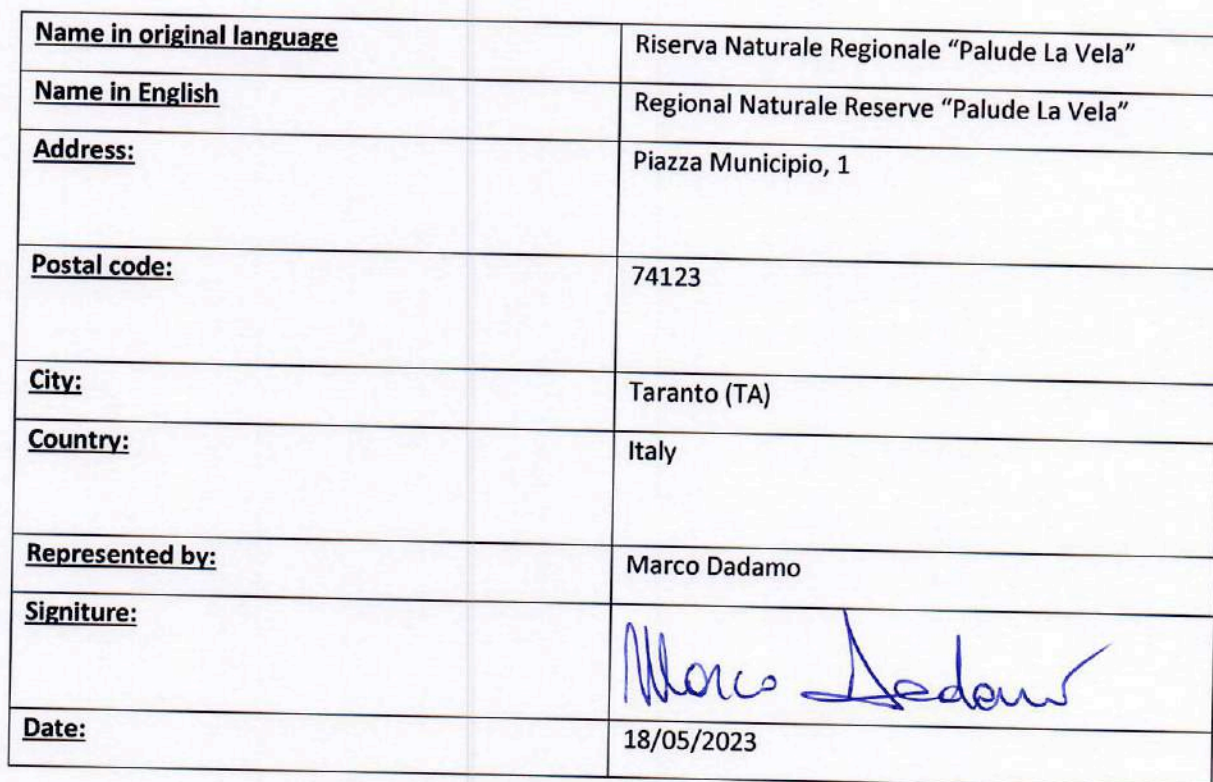 Name in original language
Riserva Naturale Regionale “Palude La Vela”
Name in English
Regional Naturale Reserve “Palude La Vela”
Address:
Piazza Municipio, 1
Postal code:
74123
City:
Taranto (TA)
Country:
Italy
Represented by:
Marco Dadamo
Signiture:
Marco Dadamo
Date:
18/05/2023